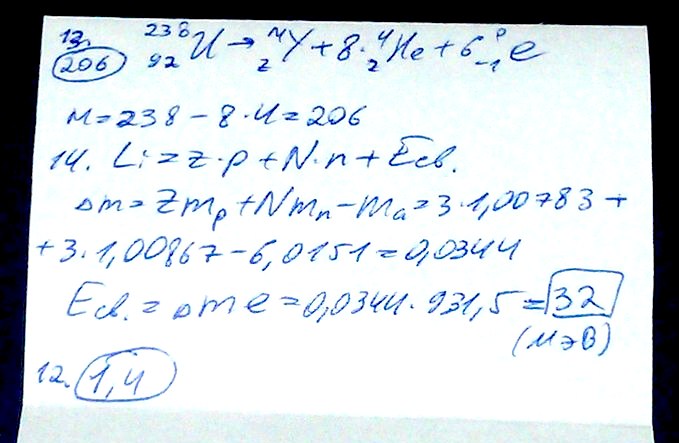 13. ²³⁸₉₂U → ᴹ_zY + 8·⁴₂He + 6⁰₋₁e
206
M = 238 - 8·4 = 206
14. Li = z·p + N·n + Eсв.
Δm = Zmₚ + Nmₙ - mₐ = 3·1,00783 +
+ 3·1,00867 - 6,0151 = 0,0344
Eсв. = Δmc = 0,0344·931,5 = 32
(МэВ)
12. 1,4